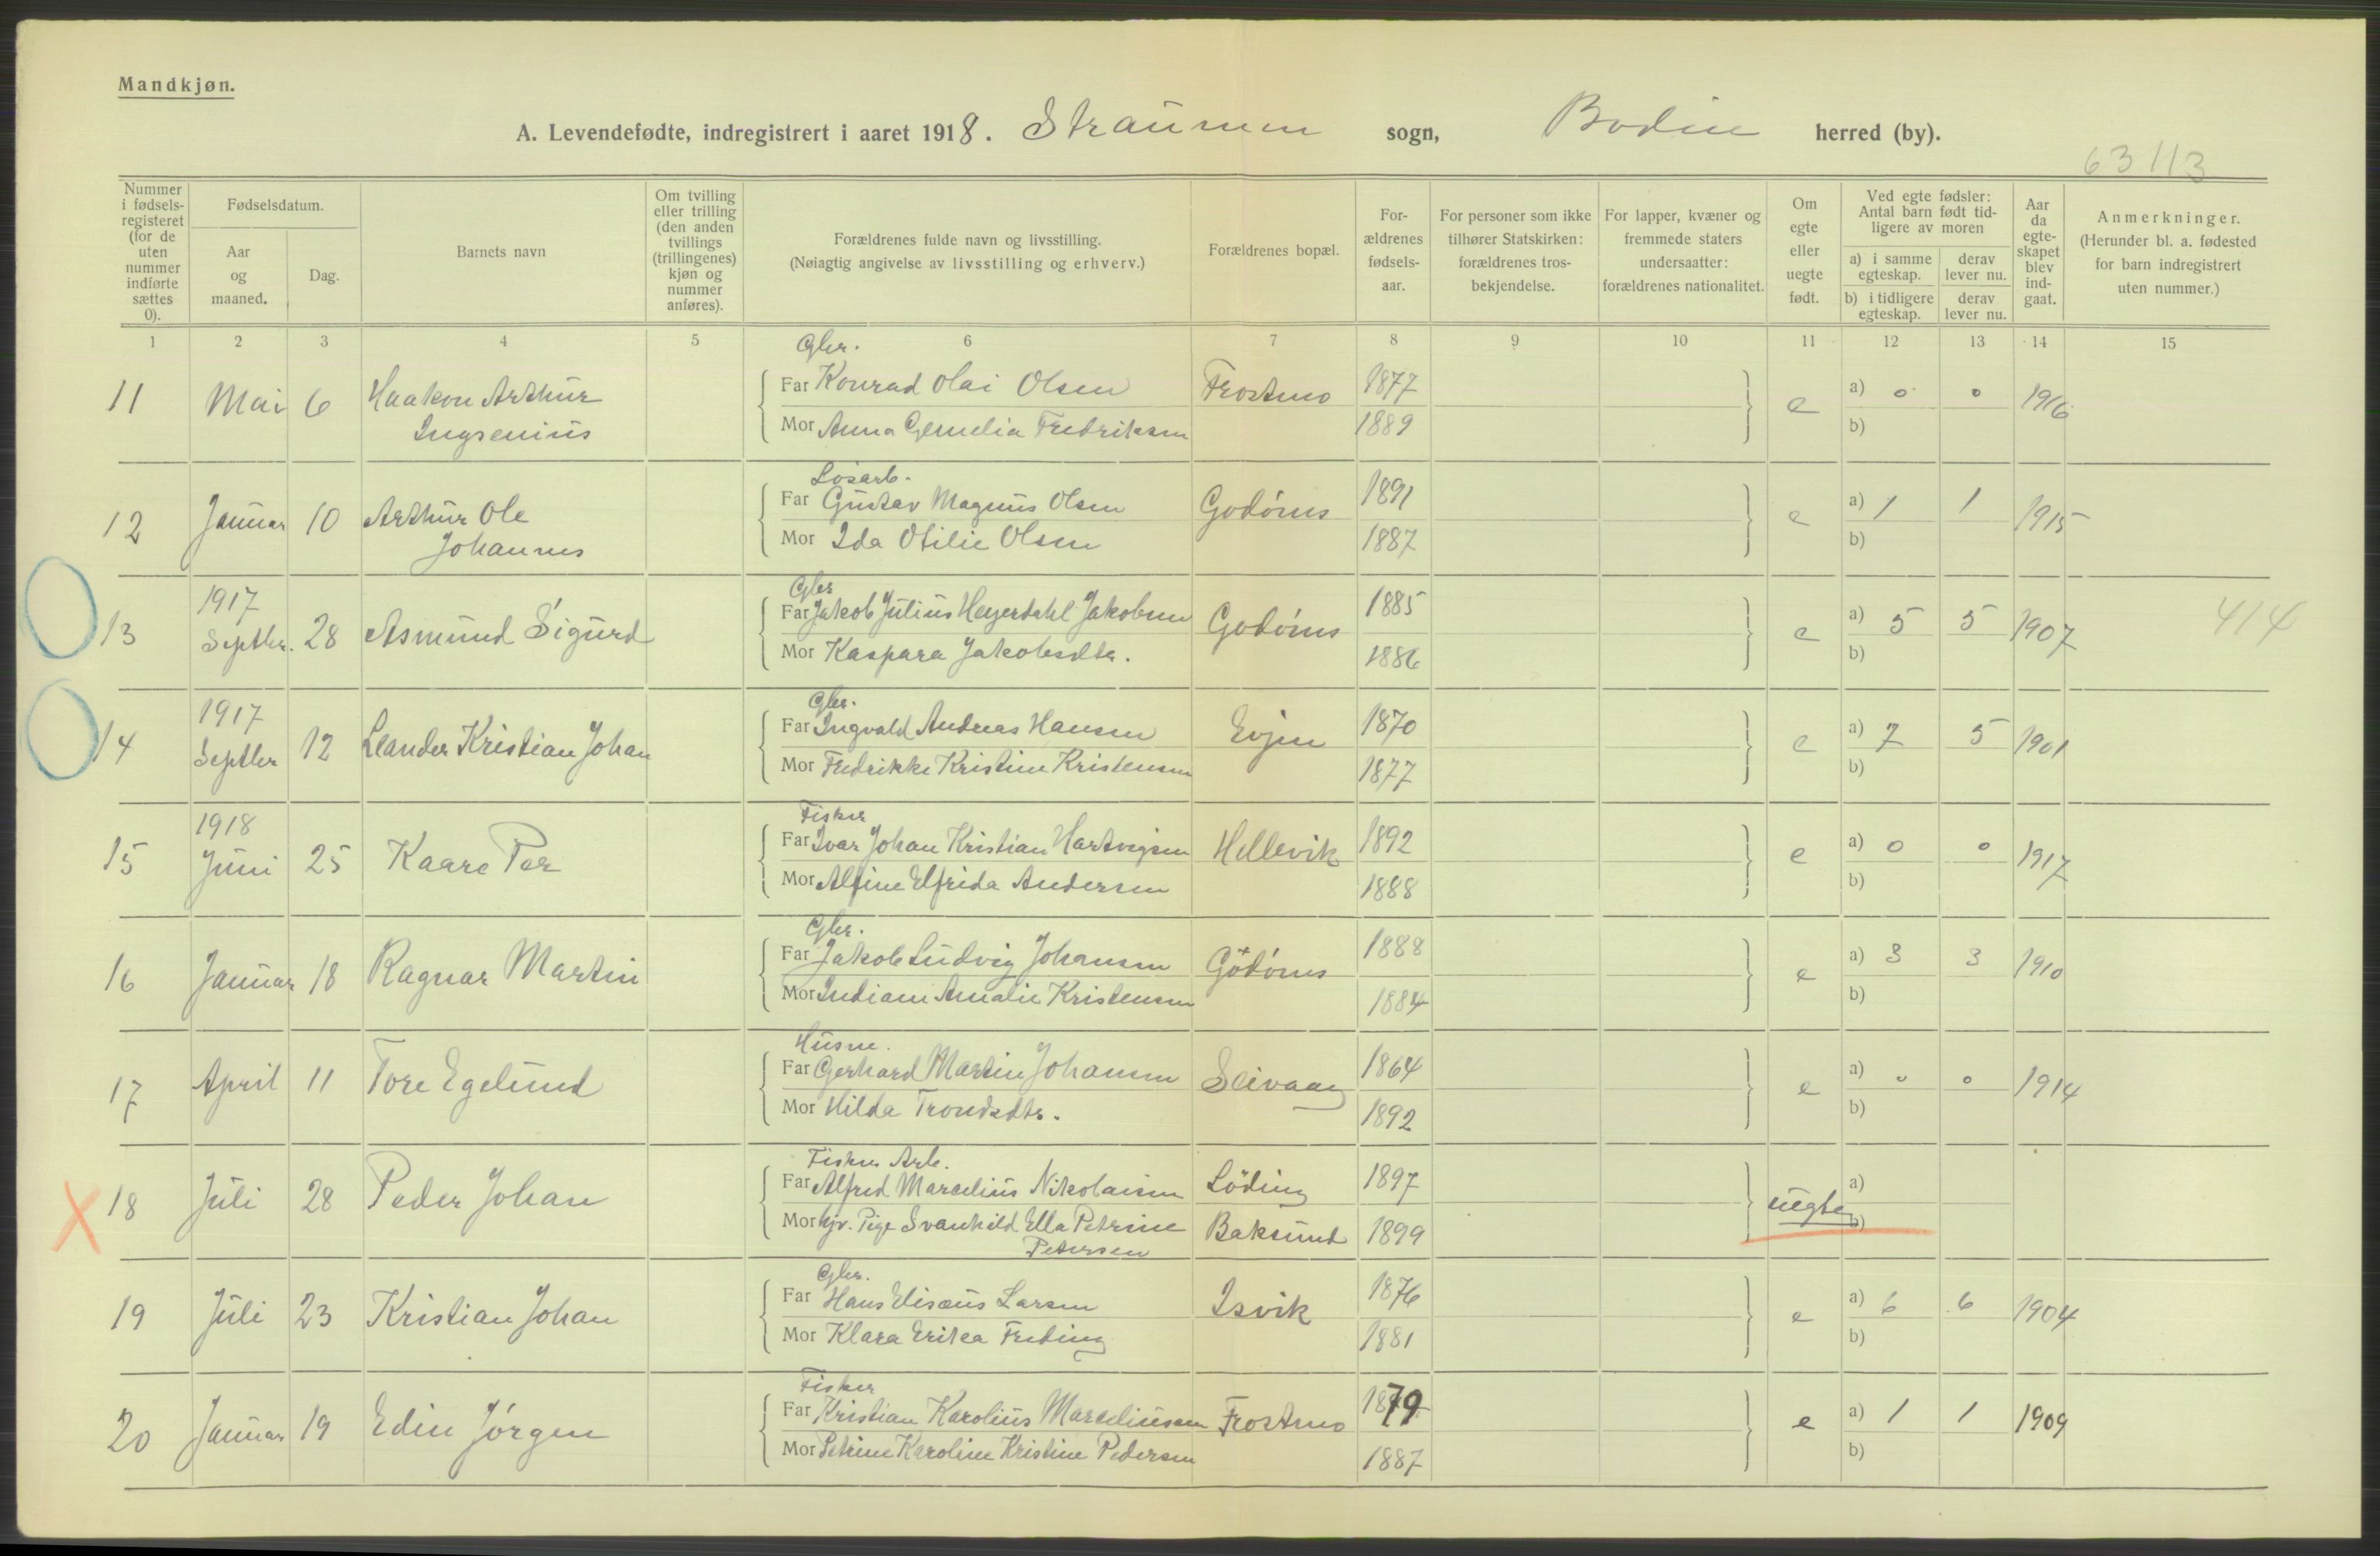 Mandkjøn.
A. Levendefødte, indregistrert i aaret 1918. Straumen sogn, Bodin herred (by).
63113
Nummer i fødsels-registeret (for de uten nummer indførte sættes 0).
Fødselsdatum.
Aar og maaned.
Dag.
Barnets navn
Om tvilling eller trilling (den anden tvillings (trillingenes) kjøn og nummer anføres).
Forældrenes fulde navn og livsstilling.
(Nøiagtig angivelse av livsstilling og erhverv.)
Forældrenes bopæl.
For-ældrenes fødsels-aar.
For personer som ikke tilhører Statskirken: forældrenes tros-bekjendelse.
For lapper, kvæner og fremmede staters undersaatter: forældrenes nationalitet.
Om egte eller uegte født.
Ved egte fødsler: Antal barn født tid-ligere av moren
a) i samme egteskap. derav lever nu.
b) i tidligere egteskap. derav lever nu.
Aar da egte-skapet blev ind-gaat.
Anmerkninger.
(Herunder bl. a. fødested for barn indregistrert uten nummer.)
1 2 3 4 5 6 7 8 9 10 11 12 13 14 15
Gbr.
11 Mai 6 Haakon Arthur Far Konrad Olai Olsen Frostmo 1877 e a) 0 0 1916
Ingsenius Mor Anna Gemelia Fredriksen 1889 b)
Løsarb.
12 Januar 10 Arthur Ole Far Gustav Magnus Olsen Godønes 1891 e a) 1 1 1915
Johannes Mor Ida Otilie Olsen 1887 b)
1917 Gbr
13 Septbr. 28 Asmund Sigurd Far Jakob Julius Heyerdahl Jakobsen Godønes 1885 e a) 5 5 1907 414
Mor Kaspara Jakobsdtr. 1886 b)
1917 Gbr.
14 Septbr 12 Leander Kristian Johan Far Ingvald Andreas Hansen Evjen 1870 e a) 7 5 1901
Mor Fredrikke Kristine Kristensen 1877 b)
1918 Fisker
15 Juni 25 Kaare Per Far Ivar Johan Kristian Hartvigsen Hellevik 1892 e a) 0 0 1917
Mor Alfine Elfrida Andersen 1888 b)
Gbr.
16 Januar 18 Ragnar Martin Far Jakob Ludvig Johansen Godønes 1888 e a) 3 3 1910
Mor Indiane Amalie Kristensen 1884 b)
Husm.
17 April 11 Tore Egelund Far Gerhard Martin Johansen Seivaag 1864 e a) 0 0 1914
Mor Hilda Trondsdtr. 1892 b)
Fisker Arb.
X 18 Juli 28 Peder Johan Far Alfred Marcelius Nikolaisen Löding 1897 uegte a)
Mor hjv. Pige Svanhild Ella Petrine Baksund 1899 b)
Petersen
Gbr.
19 Juli 23 Kristian Johan Far Hans Elisæus Larsen Isvik 1876 e a) 6 6 1904
Mor Klara Erika Freding 1881 b)
Fisker
20 Januar 19 Edin Jörgen Far Kristian Karolius Marceliussen Frostmo 1879 e a) 1 1 1909
Mor Petrine Karoline Kristine Pedersen 1887 b)